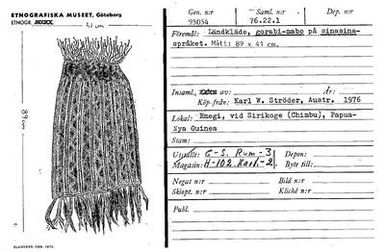 ETNOGRAFISKA MUSEET, Göteborg
ETNOGR.
41 cm
89 cm
Gen. nr 95054
Saml. nr 76.22.1
Dep. nr
Föremål: Ländkläde, gorabi-mabo på sinasina-
språket. Mått: 89 x 41 cm.
Insaml. av: År:
Köp från: Karl W. Ströder, Austr. 1976
Lokal: Emegi, vid Sirikoge (Chimbu), Papua-
Nya Guinea
Stam:
Utställt: G-S. Rum-3 Depon:
Magasin: H-102. Kart.-2 Byte till:
Negat nr: Bild nr:
Skiopt. nr: Kliché nr:
Publ.